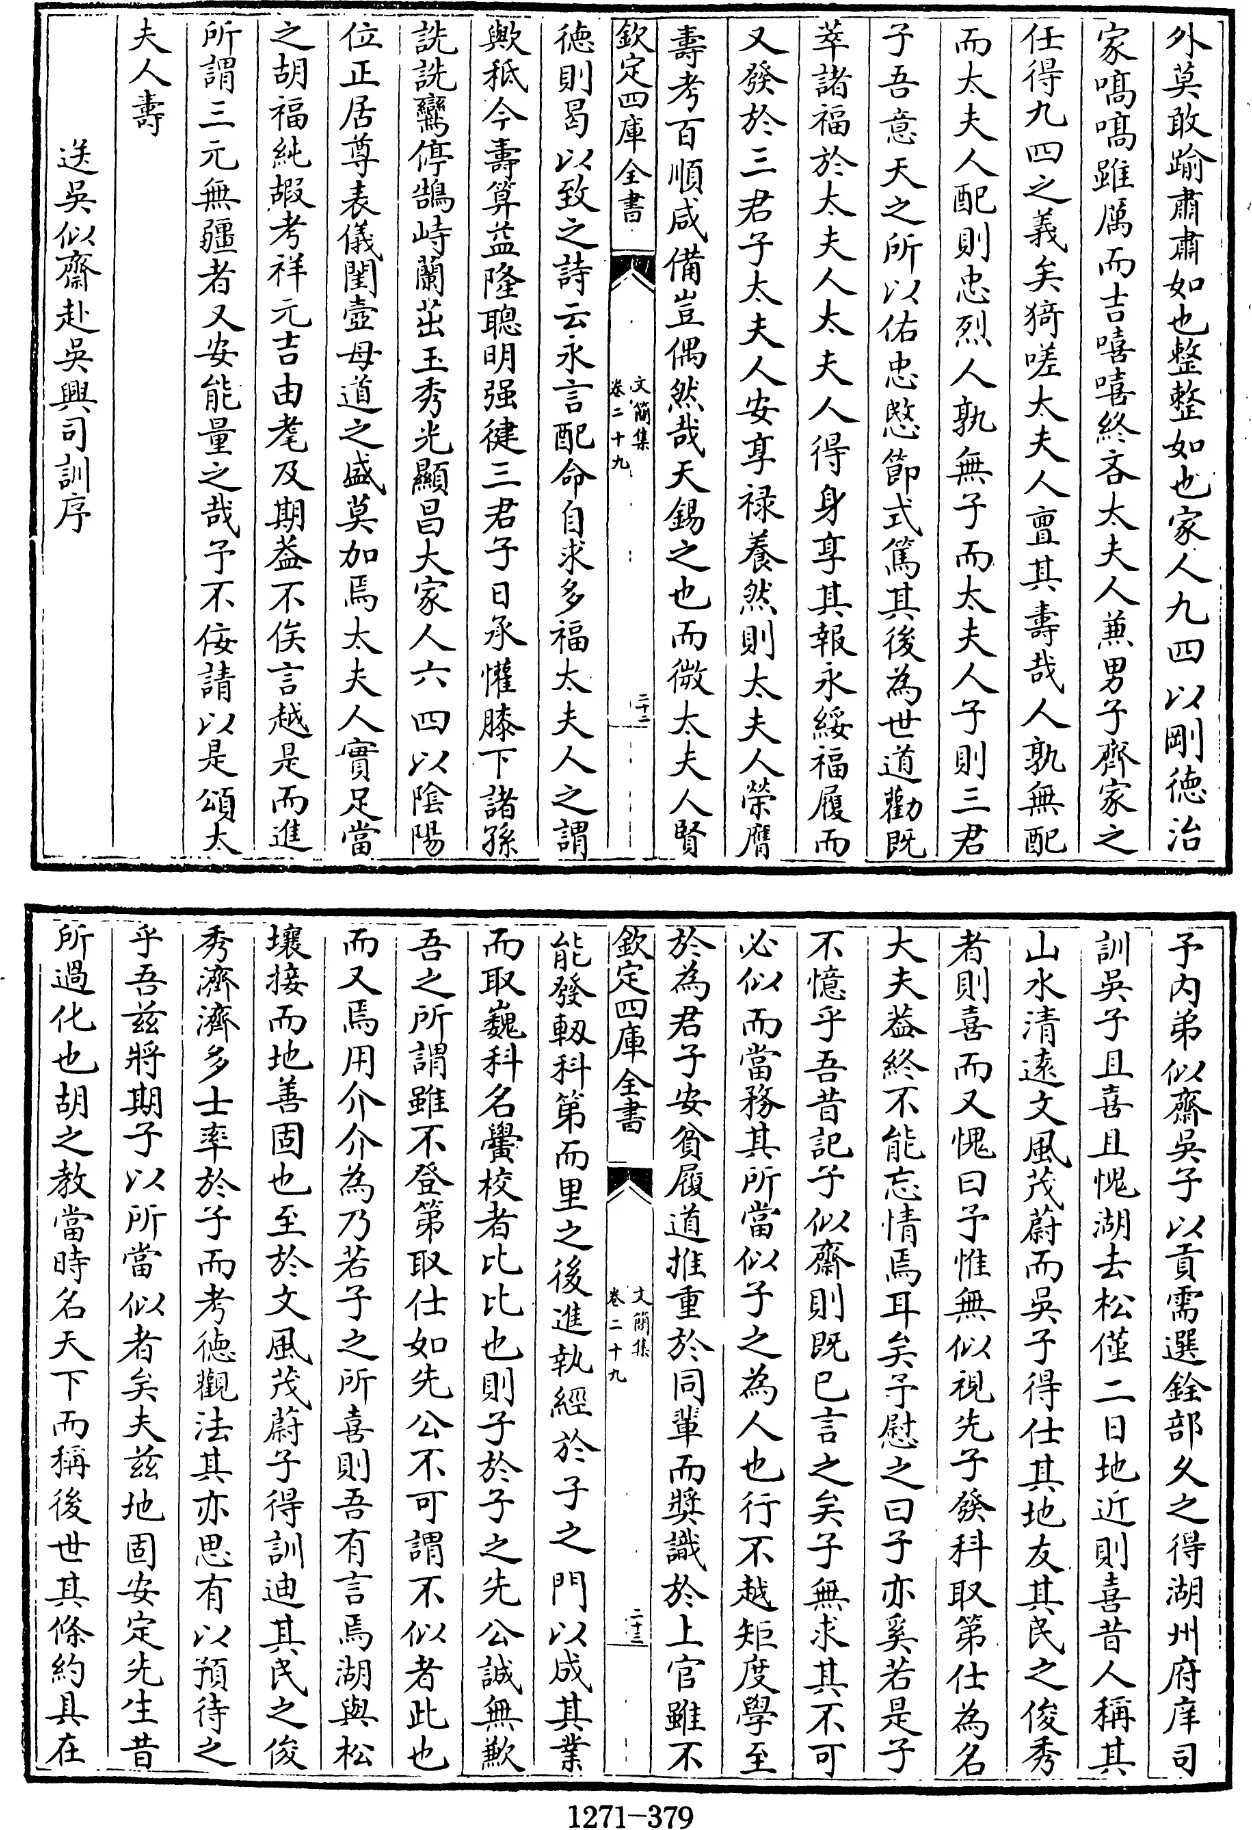 外莫敢踰肅肅如也整整如也家人九四以剛德治
家嗃嗃雖厲而吉嘻嘻終吝太夫人兼男子齊家之
任得九四之義矣猗嗟太夫人亶其壽哉人孰無配
而太夫人配則忠烈人孰無子而太夫人子則三君
子吾意天之所以佑忠愍節式篤其後為世道勸既
萃諸福於太夫人太夫人得身享其報永綏福履而
又發於三君子太夫人安享祿養然則太夫人榮膺
壽考百順咸備豈偶然哉天錫之也而微太夫人賢
欽定四庫全書
文簡集
卷二十九
二十二
德則曷以致之詩云永言配命自求多福太夫人之謂
歟秪今壽算益隆聰明强健三君子日承懽膝下諸孫
詵詵鸞停鵠峙蘭茁玉秀光顯昌大家人六四以陰陽
位正居尊表儀閨壼母道之盛莫加焉太夫人實足當
之胡福純嘏考祥元吉由耄及期益不俟言越是而進
所謂三元無疆者又安能量之哉予不佞請以是頌太
夫人壽
送吳似齋赴吳興司訓序
予内弟似齋吳子以貢需選銓部久之得湖州府庠司
訓吳子且喜且愧湖去松僅二日地近則喜昔人稱其
山水清遠文風茂蔚而吳子得仕其地友其民之俊秀
者則喜而又愧曰予惟無似視先子發科取第仕為名
大夫葢終不能忘情焉耳矣予慰之曰子亦奚若是子
不憶乎吾昔記子似齋則既已言之矣子無求其不可
必似而當務其所當似子之為人也行不越矩度學至
於為君子安貧履道推重於同輩而獎識於上官雖不
欽定四庫全書
文簡集
卷二十九
二十三
能發軔科第而里之後進執經於子之門以成其業
而取巍科名黌校者比比也則子於子之先公誠無歉
吾之所謂雖不登第取仕如先公不可謂不似者此也
而又焉用介介為乃若子之所喜則吾有言焉湖與松
壤接而地善固也至於文風茂蔚子得訓迪其民之俊
秀濟濟多士率於子而考德觀法其亦思有以預待之
乎吾兹將期子以所當似者矣夫兹地固安定先生昔
所過化也胡之教當時名天下而稱後世其條約具在
1271-379